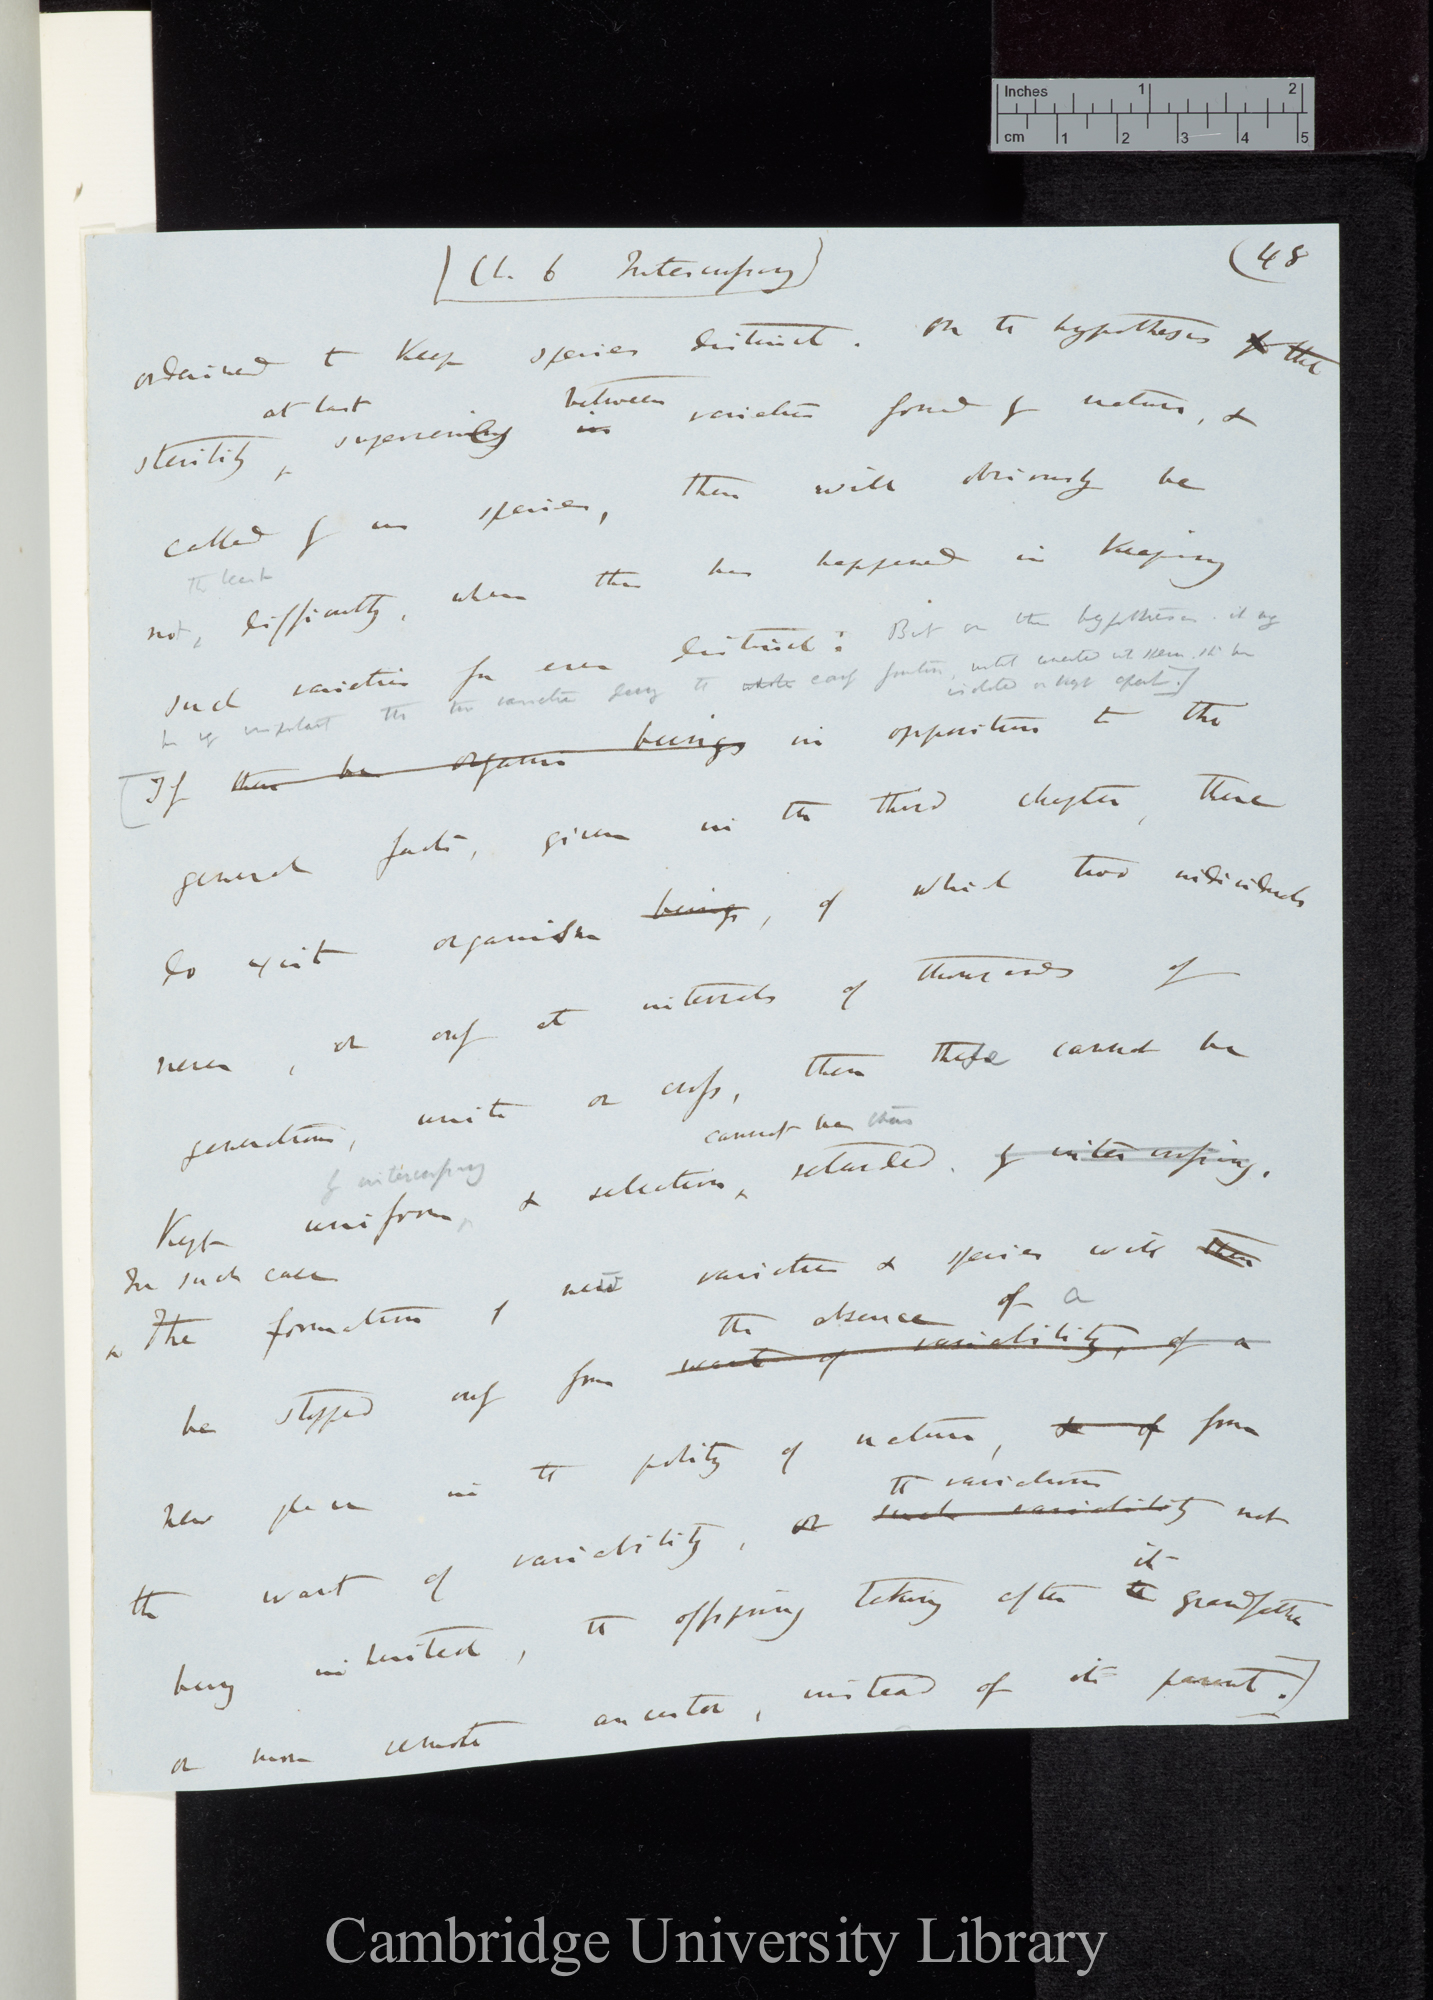 Inches 1 2
cm 1 2 3 4 5
[Ch. 6 Intercrossing]
(48
ordained to keep species distinct. On the hypothesis of that
at last between
sterility, supervening in varieties formed by nature, &
called by us species, there will obviously be
the least
not, difficulty, when this has happened in keeping
such varieties for ever distinct:
But on this hypothesis it
important the two varieties during the whole early
isolated or kept apart.]
[If there be organic beings in opposition to the
general facts, given in the third chapter, there
do exist organisms beings, of which two individuals
never, or only at intervals of thousands of
generations, unite or cross, then these cannot be
by intercrossing cannot be thus
kept uniform, & selection, retarded. by intercrossing.
In such cases
The formation of new varieties & species will then
the absence of a
be stopped only from want of variability, of a
new place in the polity of nature, & of from
the variations
the want of variability, or such variability not
it
being inherited, the offspring taking after the grandfather
or more remote ancestor, instead of its parent.]
Cambridge University Library